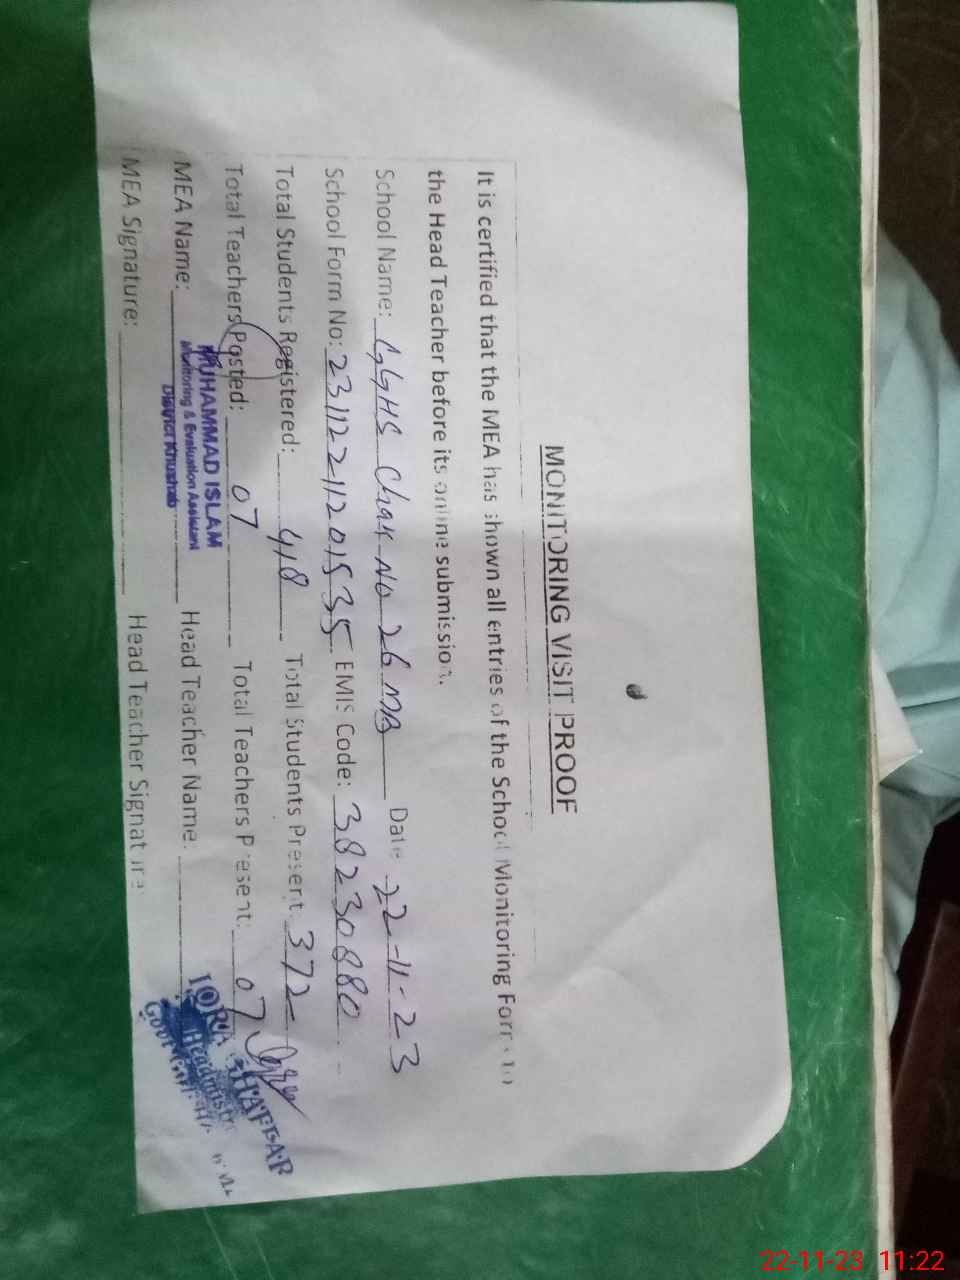 MONITORING VISIT PROOF
It is certified that the MEA has shown all entries of the School Monitoring Form to
the Head Teacher before its online submission.
School Name: GGHS Chak No 26 MB Date 22-11-23
School Form No: EMIS Code: 38230880
Total Students Registered: 418 Total Students Present: 372
Total Teachers Posted: 07 Total Teachers Present: 07
MEA Name: Head Teacher Name:
MUHAMMAD ISLAM
Monitoring & Evaluation Assistant
District Khushab
IQRA GHAFFAR
Headmistress
MEA Signature: Head Teacher Signature:
22-11-23 11:22